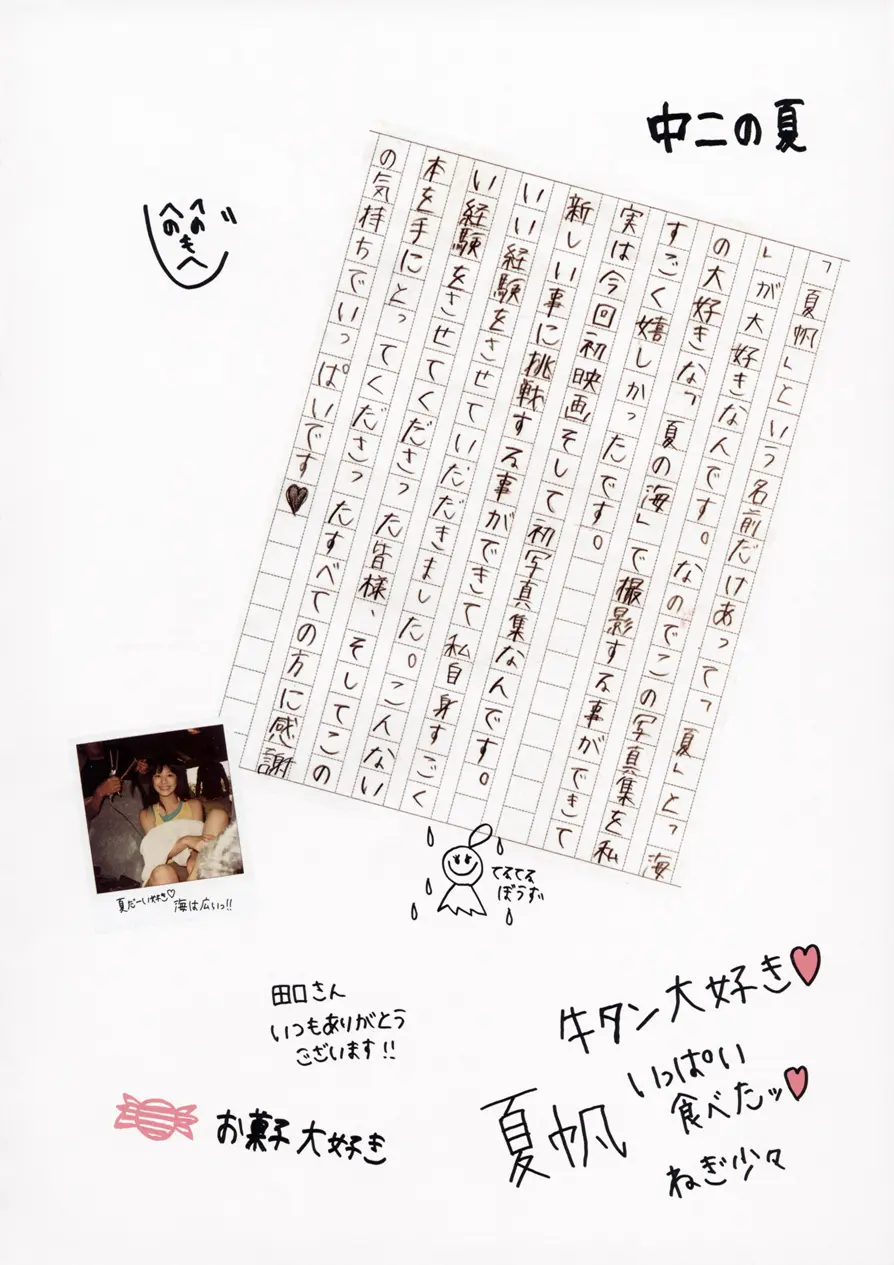 中二の夏
へのへのもへじ
「夏帆」という名前だけあって「夏」と「海
」が大好きなんです。なのでこの写真集を私
の大好きな「夏の海」で撮影する事ができて
すごく嬉しかったです。
実は今回初映画そして初写真集なんです。
新しい事に挑戦する事ができて私自身すごく
いい経験をさせていただきました。こんない
い経験をさせてくださった皆様、そしてこの
本を手にとってくださったすべての方に感謝
の気持ちでいっぱいです♥
夏だーい好き♡
海は広いっ!!
てるてる
ぼうず
田口さん
いつもありがとう
ございます!!
牛タン大好き♥
いっぱい
食べたッ♥
ねぎ少々
夏帆
お菓子大好き